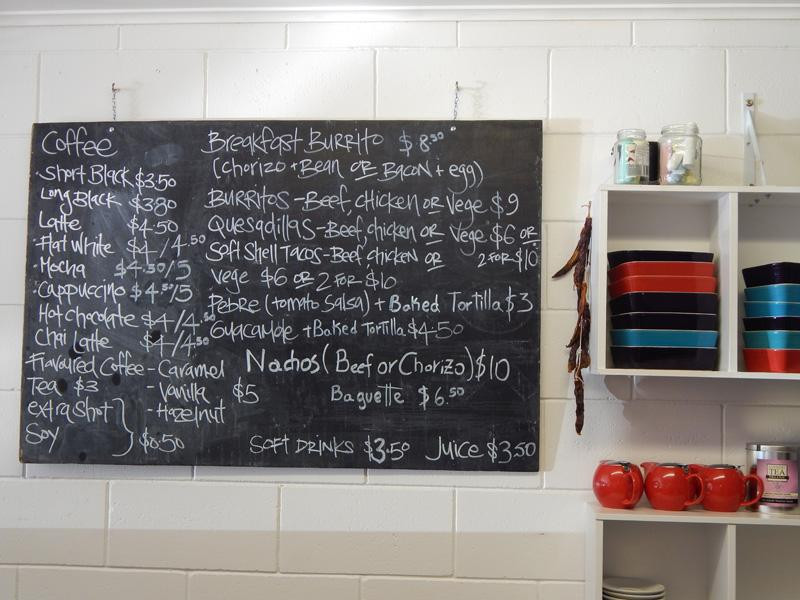 Coffee
Short Black $3.50
Long Black $3.80
Latte $4.50
Flat White $4/4.50
Mocha $4.50/5
Cappuccino $4.50/5
Hot chocolate $4/4.50
Chai Latte $4/4.50
Flavoured Coffee - Caramel
- Vanilla $5
- Hazelnut
Tea $3
extra shot
Soy } $0.50
Breakfast Burrito $8.50
(chorizo + Bean or Bacon + egg)
Burritos - Beef, chicken or Vege $9
Quesadillas - Beef, chicken or Vege $6 or
2 for $10
Soft Shell Tacos - Beef, chicken or
Vege $6 or 2 for $10
Pebre (tomato Salsa) + Baked Tortilla $3
Guacamole + Baked Tortilla $4.50
Nachos (Beef or Chorizo) $10
Baguette $6.50
Soft Drinks $3.50 Juice $3.50
TEA